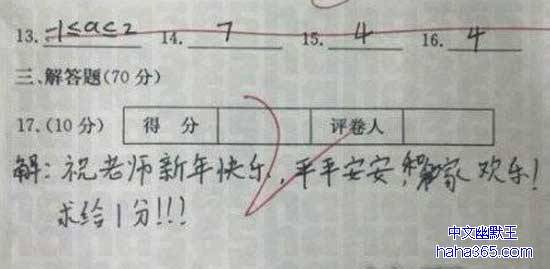 13. -1≤a≤2 14. 7 15. 4 16. 4
三、解答题(70分)
17.(10分) 得 分 评卷人
解:祝老师新年快乐,平平安安,家欢乐!
求给1分!!!
中文幽默王
haha365.com